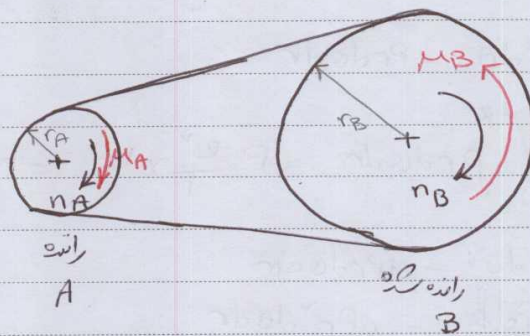 r_A
μ_A
n_A
راننده
A
r_B
μ_B
n_B
رانده شده
B